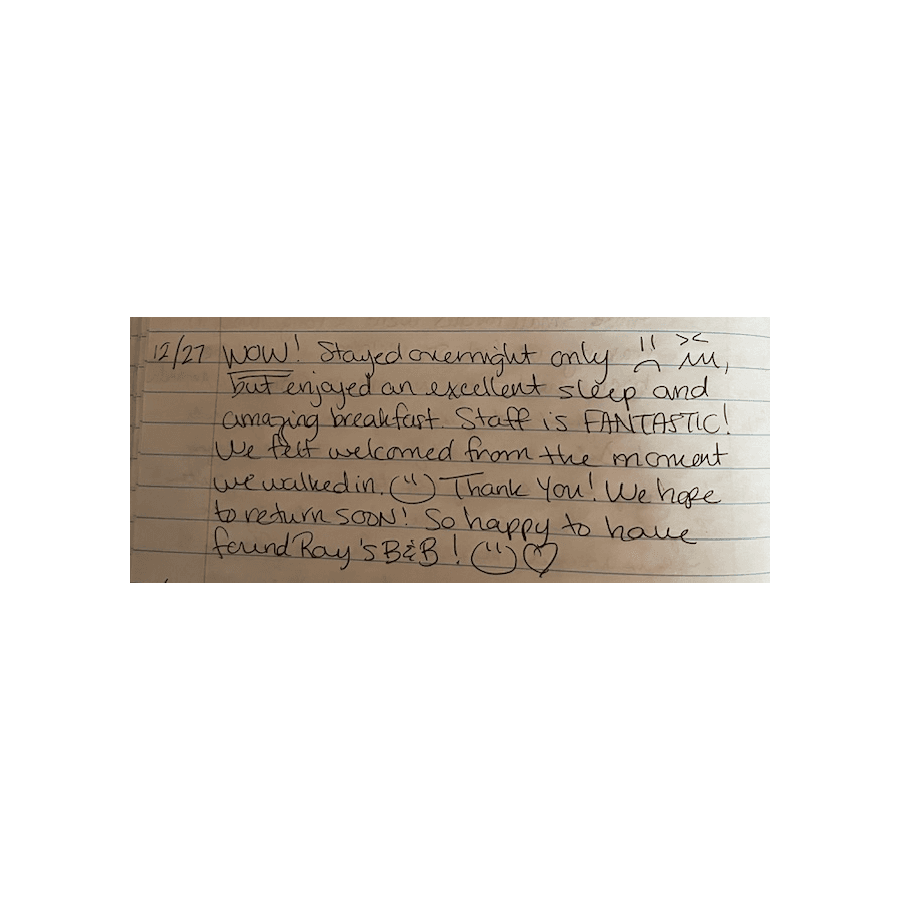 12/27 WOW! Stayed overnight only ,
but enjoyed an excellent sleep and
amazing breakfast. Staff is FANTASTIC!
We felt welcomed from the moment
we walked in. Thank You! We hope
to return SOON! So happy to have
found Ray's B&B!